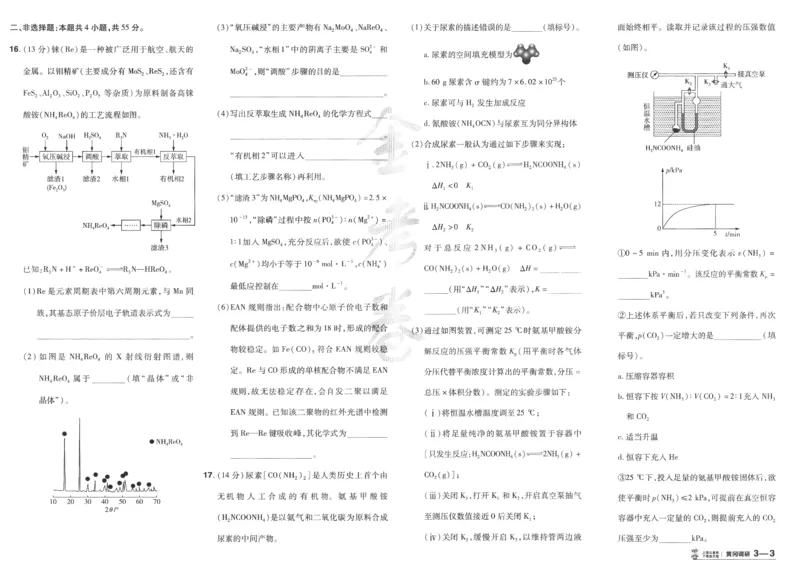 二、非选择题:本题共4小题,共55分。
16.(13分)铼(Re)是一种被广泛用于航空、航天的
金属。以钼精矿(主要成分有MoS₂、ReS₂,还含有
FeS₂、Al₂O₃、SiO₂、P₂O₅等杂质)为原料制备高铼
酸铵(NH₄ReO₄)的工艺流程如图。
O₂ NaOH H₂SO₄ R₃N NH₃·H₂O
钼精矿 氧压碱浸 调酸 萃取 有机相1 反萃取
滤渣1 滤渣2 水相1 有机相2
(Fe₂O₃)
MgSO₄
NH₄ReO₄ …… 除磷 水相2
滤渣3
已知:R₃N+H⁺+ReO₄⁻⇌R₃N—HReO₄。
(1)Re是元素周期表中第六周期元素,与Mn同
族,其基态原子价层电子轨道表示式为____
____。
(2)如图是NH₄ReO₄的X射线衍射图谱,则
NH₄ReO₄属于____(填“晶体”或“非
晶体”)。
● NH₄ReO₄
10 20 30 40 50 60 70
2θ/°
(3)“氧压碱浸”的主要产物有Na₂MoO₄、NaReO₄、
Na₂SO₄,“水相1”中的阴离子主要是SO₄²⁻和
MoO₄²⁻,则“调酸”步骤的目的是____
____。
(4)写出反萃取生成NH₄ReO₄的化学方程式____
____。
“有机相2”可以进入____
(填工艺步骤名称)再利用。
(5)“滤渣3”为NH₄MgPO₄,Kₛₚ(NH₄MgPO₄)=2.5×
10⁻¹³,“除磷”过程中按n(PO₄³⁻):n(Mg²⁺)=
1:1加入MgSO₄,充分反应后,欲使c(PO₄³⁻)、
c(Mg²⁺)均小于等于10⁻⁶ mol·L⁻¹,c(NH₄⁺)
最低应控制在____mol·L⁻¹。
(6)EAN规则指出:配合物中心原子价电子数和
配体提供的电子数之和为18时,形成的配合
物较稳定。如Fe(CO)₅符合EAN规则较稳
定。Re与CO形成的单核配合物不满足EAN
规则,故无法稳定存在,会自发二聚以满足
EAN规则。已知该二聚物的红外光谱中检测
到Re—Re键吸收峰,其化学式为____
____。
17.(14分)尿素[CO(NH₂)₂]是人类历史上首个由
无机物人工合成的有机物。氨基甲酸铵
(H₂NCOONH₄)是以氨气和二氧化碳为原料合成
尿素的中间产物。
(1)关于尿素的描述错误的是____(填标号)。
a.尿素的空间填充模型为
b.60 g尿素含σ键约为7×6.02×10²³个
c.尿素可与H₂发生加成反应
d.氰酸铵(NH₄OCN)与尿素互为同分异构体
(2)合成尿素一般认为通过如下步骤来实现:
ⅰ.2NH₃(g)+CO₂(g)⇌H₂NCOONH₄(s)
ΔH₁<0 K₁
ⅱ.H₂NCOONH₄(s)⇌CO(NH₂)₂(s)+H₂O(g)
ΔH₂>0 K₂
对于总反应2NH₃(g)+CO₂(g)⇌
CO(NH₂)₂(s)+H₂O(g) ΔH=____
____(用“ΔH₁”“ΔH₂”表示),K=____
____(用“K₁”“K₂”表示)。
(3)通过如图装置,可测定25 ℃时氨基甲酸铵分
解反应的压强平衡常数Kₚ(用平衡时各气体
分压代替平衡浓度计算出的平衡常数,分压=
总压×体积分数)。测定的实验步骤如下:
(ⅰ)将恒温水槽温度调至25 ℃;
(ⅱ)将足量纯净的氨基甲酸铵置于容器中
[只发生反应:H₂NCOONH₄(s)⇌2NH₃(g)+
CO₂(g)];
(ⅲ)关闭K₃,打开K₁和K₂,开启真空泵抽气
至测压仪数值接近0后关闭K₁;
(ⅳ)关闭K₂,缓慢开启K₃,以维持管两边液
面始终相平。读取并记录该过程的压强数值
(如图)。
测压仪 K₁ 接真空泵
K₂ K₃ 通大气
恒温水槽
H₂NCOONH₄ 硅油
p/kPa
12
0 5 t/min
①0~5 min内,用分压变化表示v(NH₃)=
____kPa·min⁻¹。该反应的平衡常数Kₚ=
____kPa³。
②上述体系平衡后,若只改变下列条件,再次
平衡,p(CO₂)一定增大的是____(填
标号)。
a.压缩容器容积
b.恒容下按V(NH₃):V(CO₂)=2:1充入NH₃
和CO₂
c.适当升温
d.恒容下充入He
③25 ℃下,投入足量的氨基甲酸铵固体后,欲
使平衡时p(NH₃)≤2 kPa,可提前在真空恒容
容器中充入一定量的CO₂,则提前充入的CO₂
压强至少为____kPa。
黄冈调研 3—3
金考卷